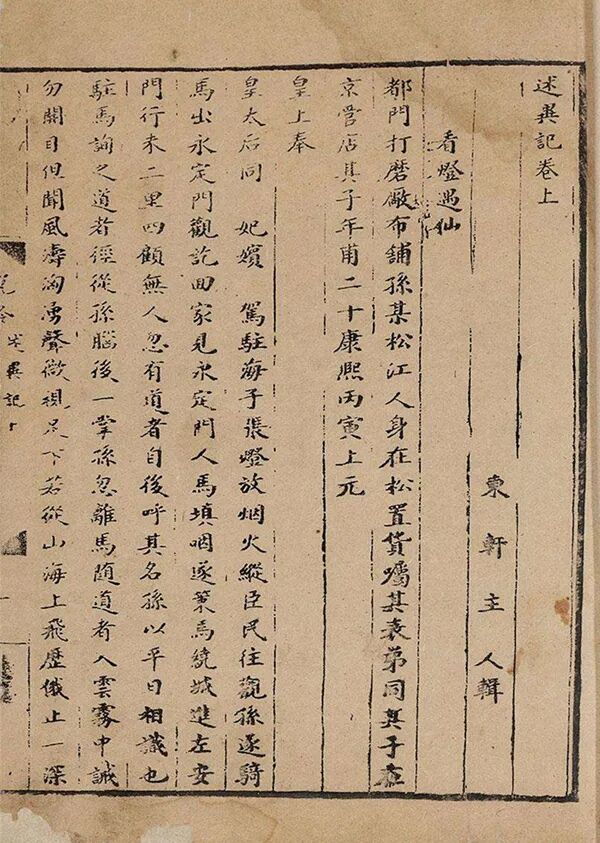 述異記卷上
東軒主人輯
看燈遇仙
都門打磨厰布舖孫某松江人身在松置貨囑其表弟同其子在
京營店其子年甫二十康熙丙寅上元
皇上奉
皇太后同 妃嬪 駕駐海子張燈放烟火縱臣民往觀孫遂騎
馬出永定門觀訖回家見永定門人馬填咽遂策馬繞城進左安
門行未二里四顧無人忽有道者自後呼其名孫以平日相識也
駐馬詢之道者徑從孫腦後一掌孫忽離馬隨道者入雲霧中誡
勿開目但聞風濤洶湧聲微視足下若從山海上飛歷俄止一深
述異記